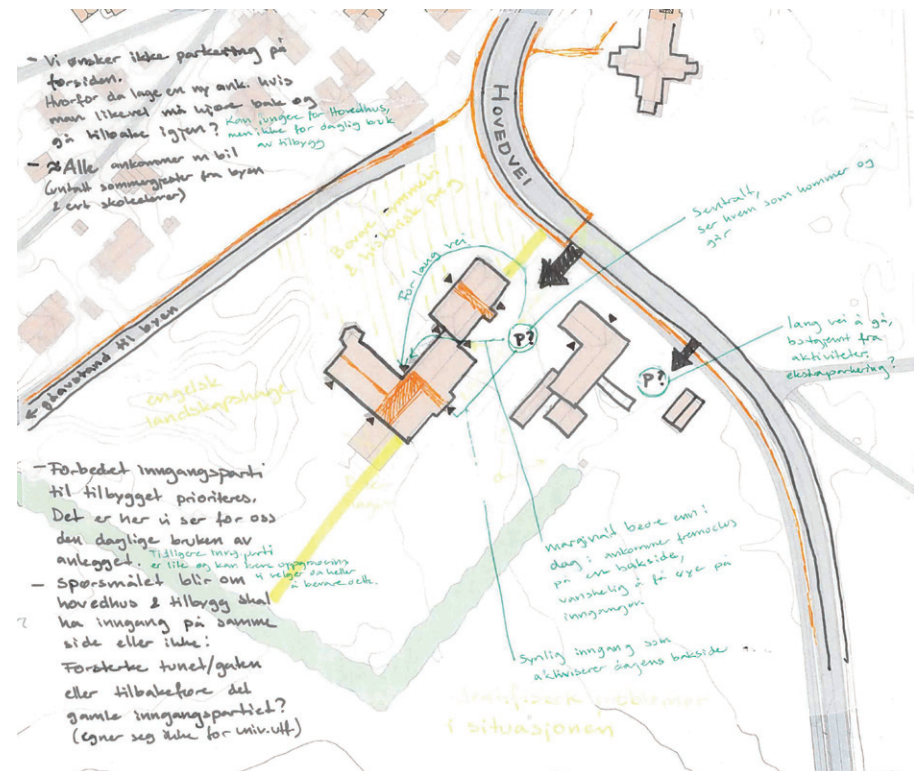 - Vi ønsker ikke parkering på
forsiden.
Hvorfor da lage en ny ank. hvis
man likevel må kjøre bak og
gå tilbake igjen?
Kan fungere for Hovedhus,
men ikke for daglig bruk
av tilbygg
- ≈ Alle ankommer m bil
(untatt sommergjester fra byen
& evt skoleelever)
HOVEDVEI
Bevare symmetri
& historisk preg
For lang vei
Sentralt,
ser hvem som kommer og
går
P?
lang vei å gå,
bortgjemt fra
aktiviteter.
ekstraparkering?
P?
← gåavstand til byen
engelsk
landskapshage
- Forbedet inngangsparti
til tilbygget prioriteres.
Det er her vi ser for oss
den daglige bruken av
anlegget.
Tidligere inng.parti
er lite og kan kreve oppgradering
vi velger da heller
å bevare dette.
- Spørsmålet blir om
hovedhus & tilbygg skal
ha inngang på samme
side eller ikke:
Forsterke tunet/gaten
eller tilbakeføre det
gamle inngangspartiet?
(egner seg ikke for univ.utf)
marginalt bedre enn i
dag: ankommer fremdeles
på en bakside,
vanskelig å få øye på
inngangen
Synlig inngang som
aktiviserer dagens bakside ...
i situasjonen